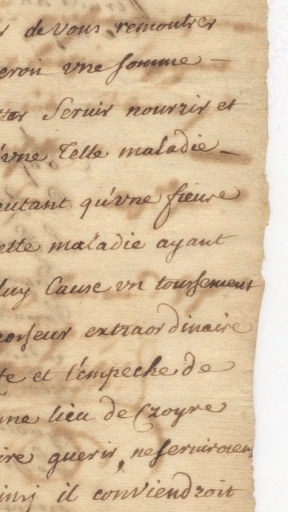 de vous remontrer
vne somme
seruir nourrir et
vne telle maladie
autant qu'vne fieure
cette maladie ayant
luy cause vn toussement
grosseur extraordinaire
et l'empeche de
lieu de croyre
guerir, ne seruiroient
il conviendroit